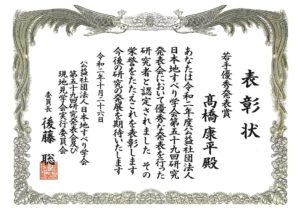 表彰状
若手優秀発表賞
髙橋康平殿
あなたは令和二年度公益社団法人
日本地すべり学会第五十九回研究
発表会において優秀な発表を行った
研究者と認定されました その
栄誉をたたえこれを表彰します
今後の研究の発展を期待いたします
令和二年十月二十六日
公益社団法人日本地すべり学会
第五十九回研究発表会及び
現地見学会実行委員会
委員長 後藤聡